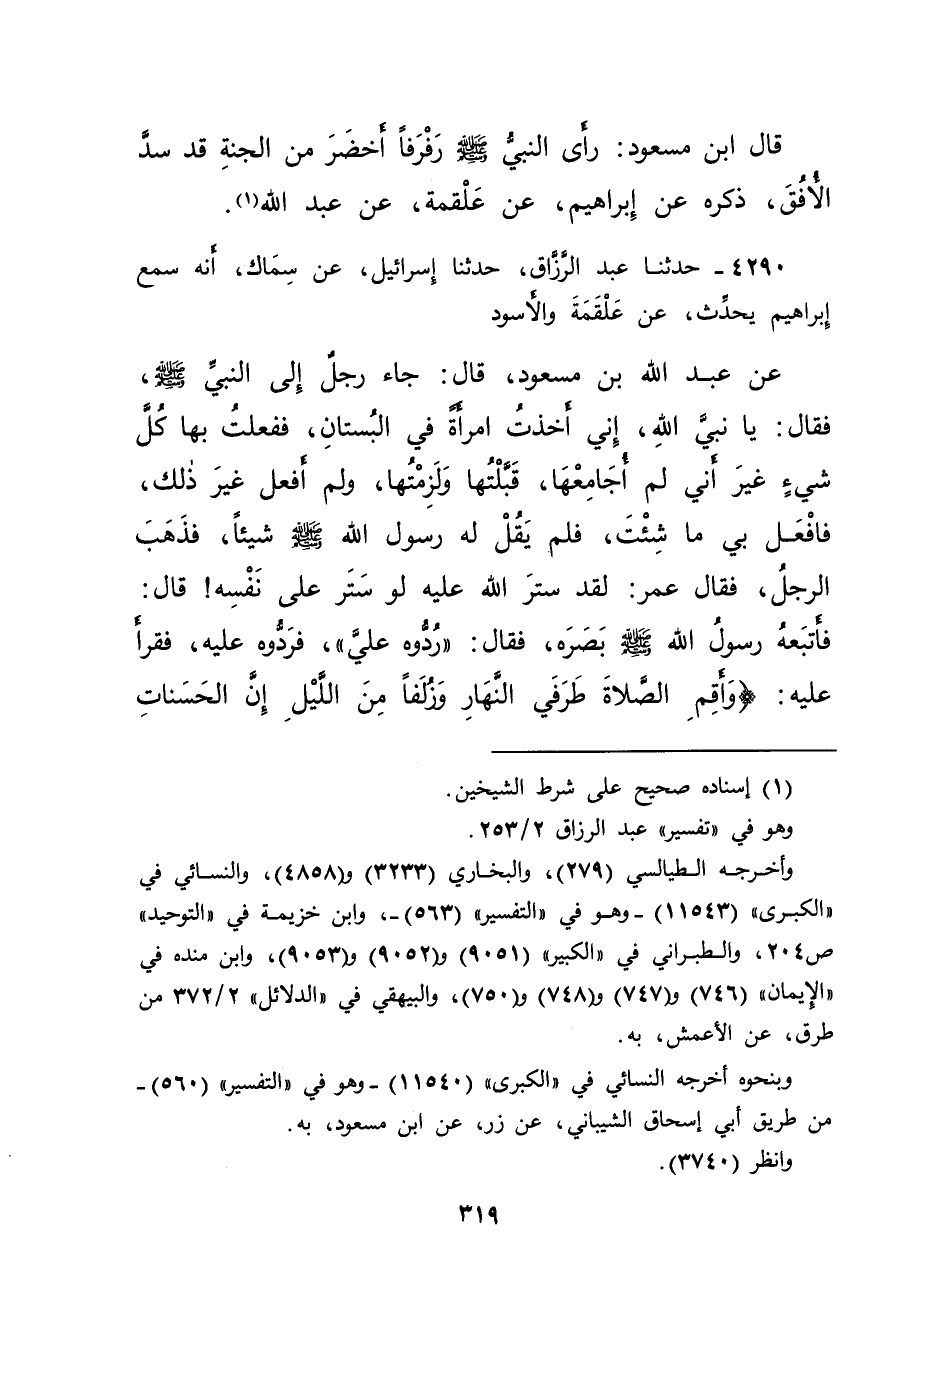 قال ابن مسعود: رأَى النبيُّ ﷺ رَفْرَفاً أَخضَرَ من الجنةِ قد سدَّ
الأُفُقَ، ذكره عن إبراهيم، عن عَلْقمة، عن عبد الله(١).
٤٢٩٠ـ حدثنا عبد الرَّزَّاق، حدثنا إسرائيل، عن سِمَاك، أَنه سمع
إبراهيم يحدِّث، عن عَلْقَمَةَ والأَسود
عن عبد الله بن مسعود، قال: جاء رجلٌ إلى النبيِّ ﷺ،
فقال: يا نبيَّ اللهِ، إني أَخذتُ امرأَةً في البُستانِ، ففعلتُ بها كُلَّ
شيءٍ غيرَ أَني لم أُجَامِعْهَا، قَبَّلْتُها وَلَزِمْتُها، ولم أَفعل غيرَ ذٰلك،
فافْعَل بي ما شِئْتَ، فلم يَقُلْ له رسول الله ﷺ شيئاً، فذَهَبَ
الرجلُ، فقال عمر: لقد سترَ الله عليه لو سَتَر على نَفْسِه! قال:
فأَتبَعهُ رسولُ الله ﷺ بَصَرَه، فقال: «رُدُّوه عليَّ»، فرَدُّوه عليه، فقرأَ
عليه: ﴿وَأَقِمِ الصَّلاةَ طَرَفَي النَّهَارِ وَزُلَفاً مِنَ اللَّيْلِ إِنَّ الحَسَناتِ
(١) إسناده صحيح على شرط الشيخين.
وهو في «تفسير» عبد الرزاق ٢٥٣/٢.
وأخرجه الطيالسي (٢٧٩)، والبخاري (٣٢٣٣) و(٤٨٥٨)، والنسائي في
«الكبرى» (١١٥٤٣) ـ وهو في «التفسير» (٥٦٣)ـ، وابن خزيمة في «التوحيد»
ص٢٠٤، والطبراني في «الكبير» (٩٠٥١) و(٩٠٥٢) و(٩٠٥٣)، وابن منده في
«الإيمان» (٧٤٦) و(٧٤٧) و(٧٤٨) و(٧٥٠)، والبيهقي في «الدلائل» ٣٧٢/٢ من
طرق، عن الأعمش، به.
وبنحوه أخرجه النسائي في «الكبرى» (١١٥٤٠) ـ وهو في «التفسير» (٥٦٠)ـ
من طريق أبي إسحاق الشيباني، عن زر، عن ابن مسعود، به.
وانظر (٣٧٤٠).
٣١٩